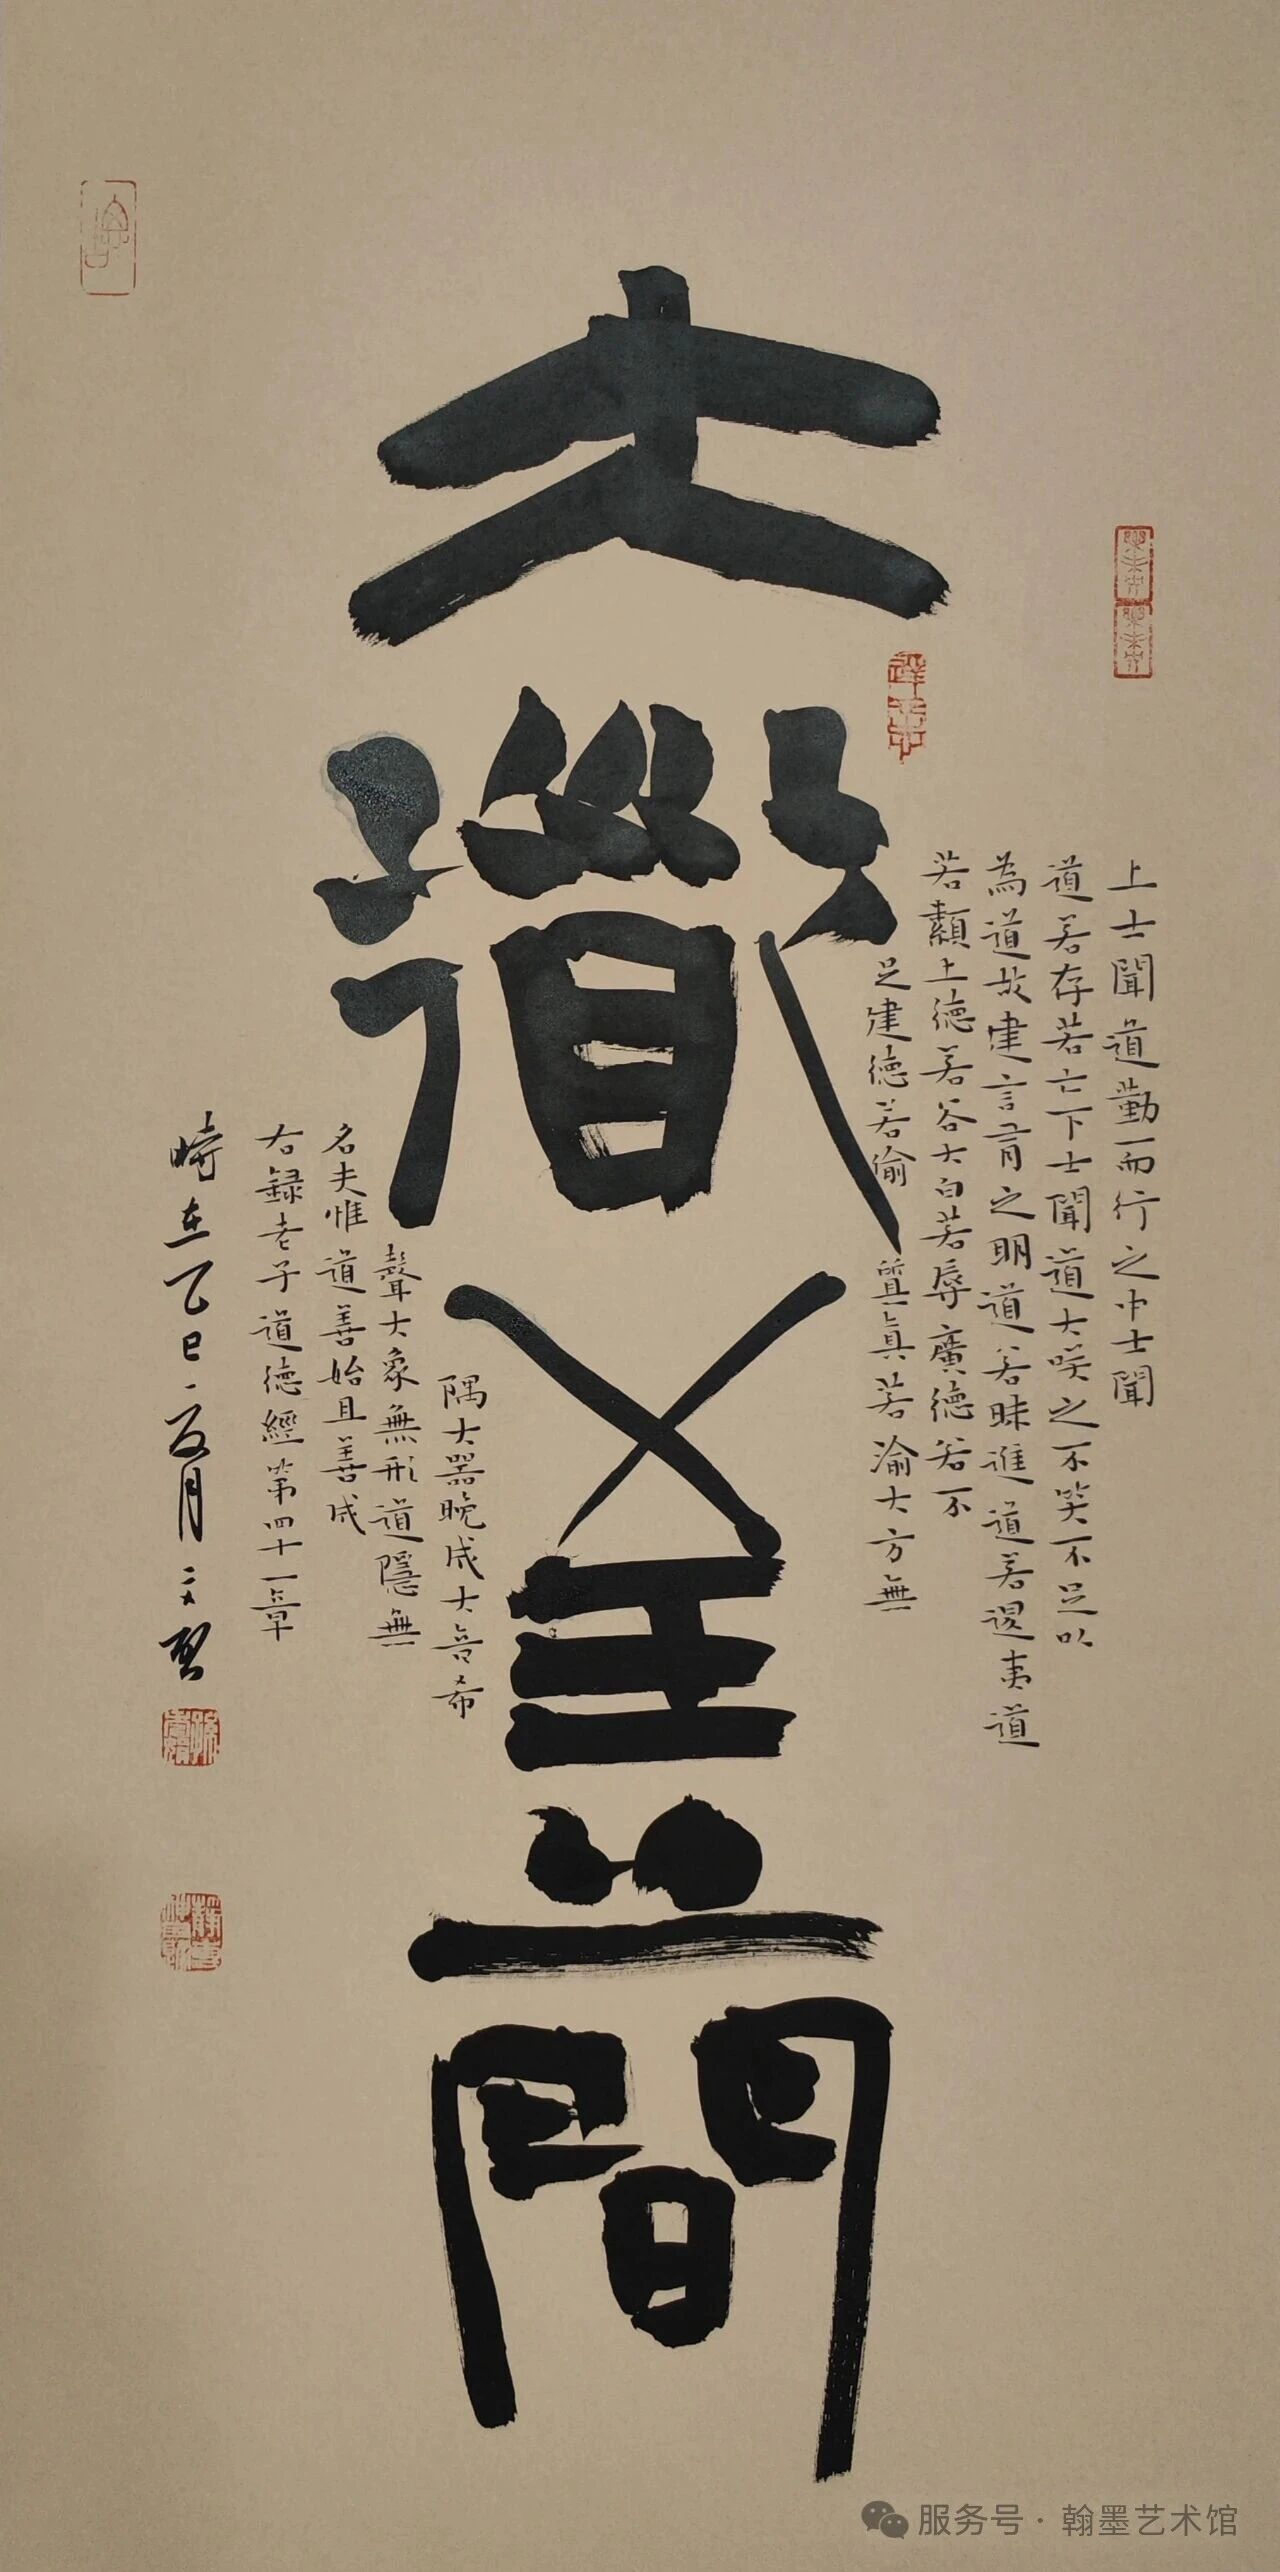 大道至簡
上士聞道勤而行之中士聞
道若存若亡下士聞道大咲之不笑不足以
為道故建言有之明道若昧進道若退夷道
若纇上德若谷大白若辱廣德若不
足建德若偷質真若渝大方無
隅大器晚成大音希
聲大象無形道隱無
名夫惟道善始且善成
右録老子道德經第四十一章
時在乙巳
服务号·翰墨艺术馆